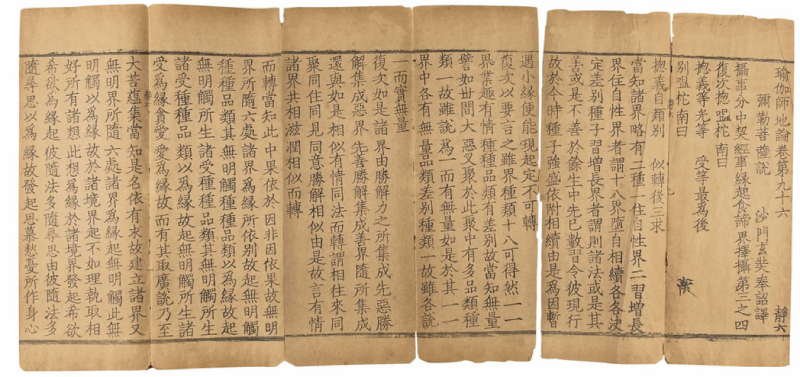 瑜伽師地論卷第九十六 静六
彌勒菩薩説 沙門玄奘奉詔譯
攝事分中契經事緣起食諦界擇攝第三之四
復次揔嗢柁南曰
揔義等光等 受等最為後
別嗢柁南曰
揔義自類別 似轉後三求
當知諸界略有二種一住自性界二習增長
界住自性界者謂十八界墮自相續各各決
定差別種子習增長界者謂則諸法或是其
善或是不善於餘生中先已數習令彼現行
故於今時種子強盛依附相續由是為因暫
遇小緣便能現起定不可轉
復次以要言之雖界種類十八可得然一一
界業趣有情種種品類有差別故當知無量
譬如世間大惡叉聚於此聚中有多品類種
類一故雖說為一而有無量如是於其一一
界中各有無量品類差別種類一故雖各說
一而實無量
復次如是諸界由勝解力之所集成先惡勝
解集成惡界先善勝解集成善界隨所集成
還與如是相似有情同法而轉謂相往來同
聚同住同見同意勝解相似由是故言有情
諸界共相滋潤相似而轉
而轉當知此中果依於因非因依果故無明
界所隨六處諸界為緣所依別故起無明觸
種種品類其無明觸種種品類以為緣故起
無明觸所生諸受種種品類其無明觸所生
諸受種種品類以為緣故起無明觸所生諸
愛為緣貪愛愛為緣故而有其取廣說乃至
大苦蘊集當知是名依有求故建立諸界又
無明界所隨六處諸界為緣起無明觸此無
明觸以為緣故於諸境界起不如理執取相
好所有諸想此想為緣於諸境界發起希欲
希欲為緣起彼隨法多隨尋思由彼隨法多
隨尋思以為緣故發起思慕愁憂所作身心